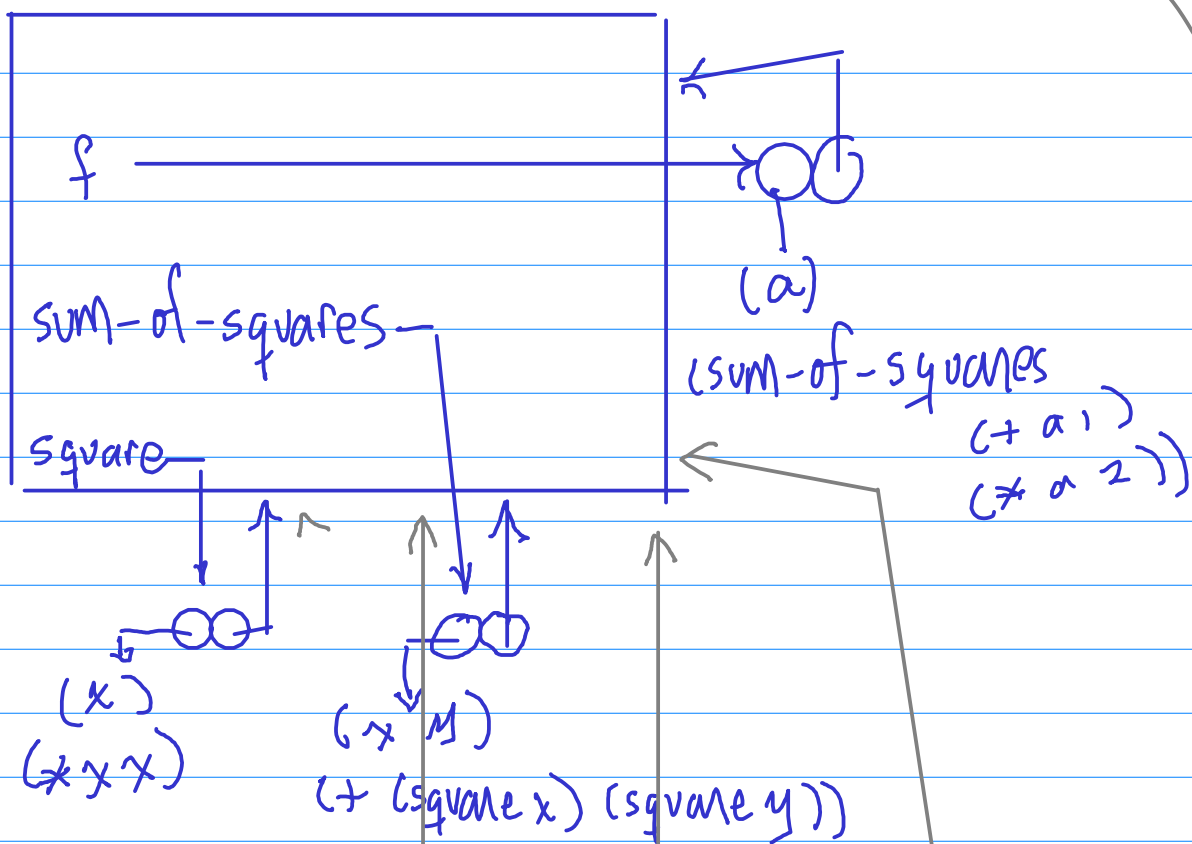 f
(a)
sum-of-squares
(sum-of-squares
(+ a 1)
(* a 2))
square
(x)
(* x x)
(x y)
(+ (square x) (square y))